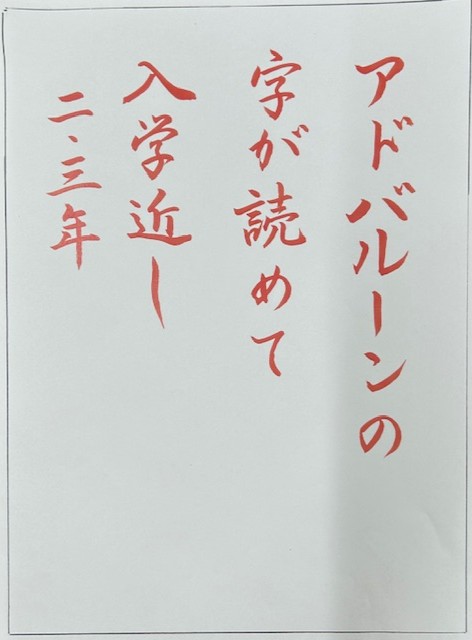 アドバルーンの
字が読めて
入学近し
二・三年